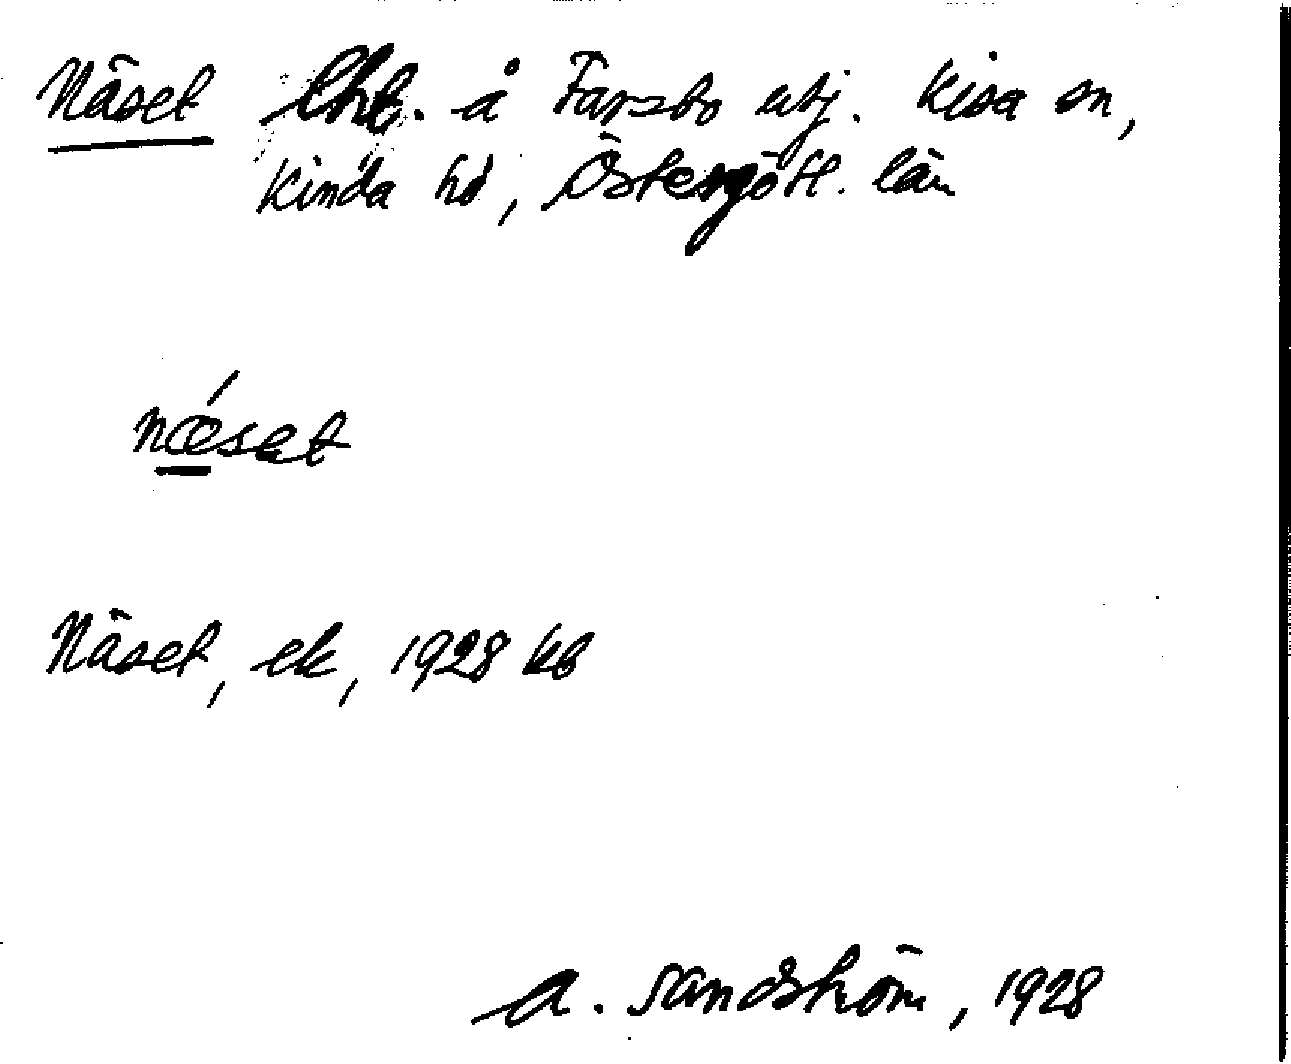 Näset lht. å Farsbo utj. Kisa sn,
Kinda hd, Östergötl. län
nǽset
Näset, ek, 1928 kb
A. Sandström, 1928